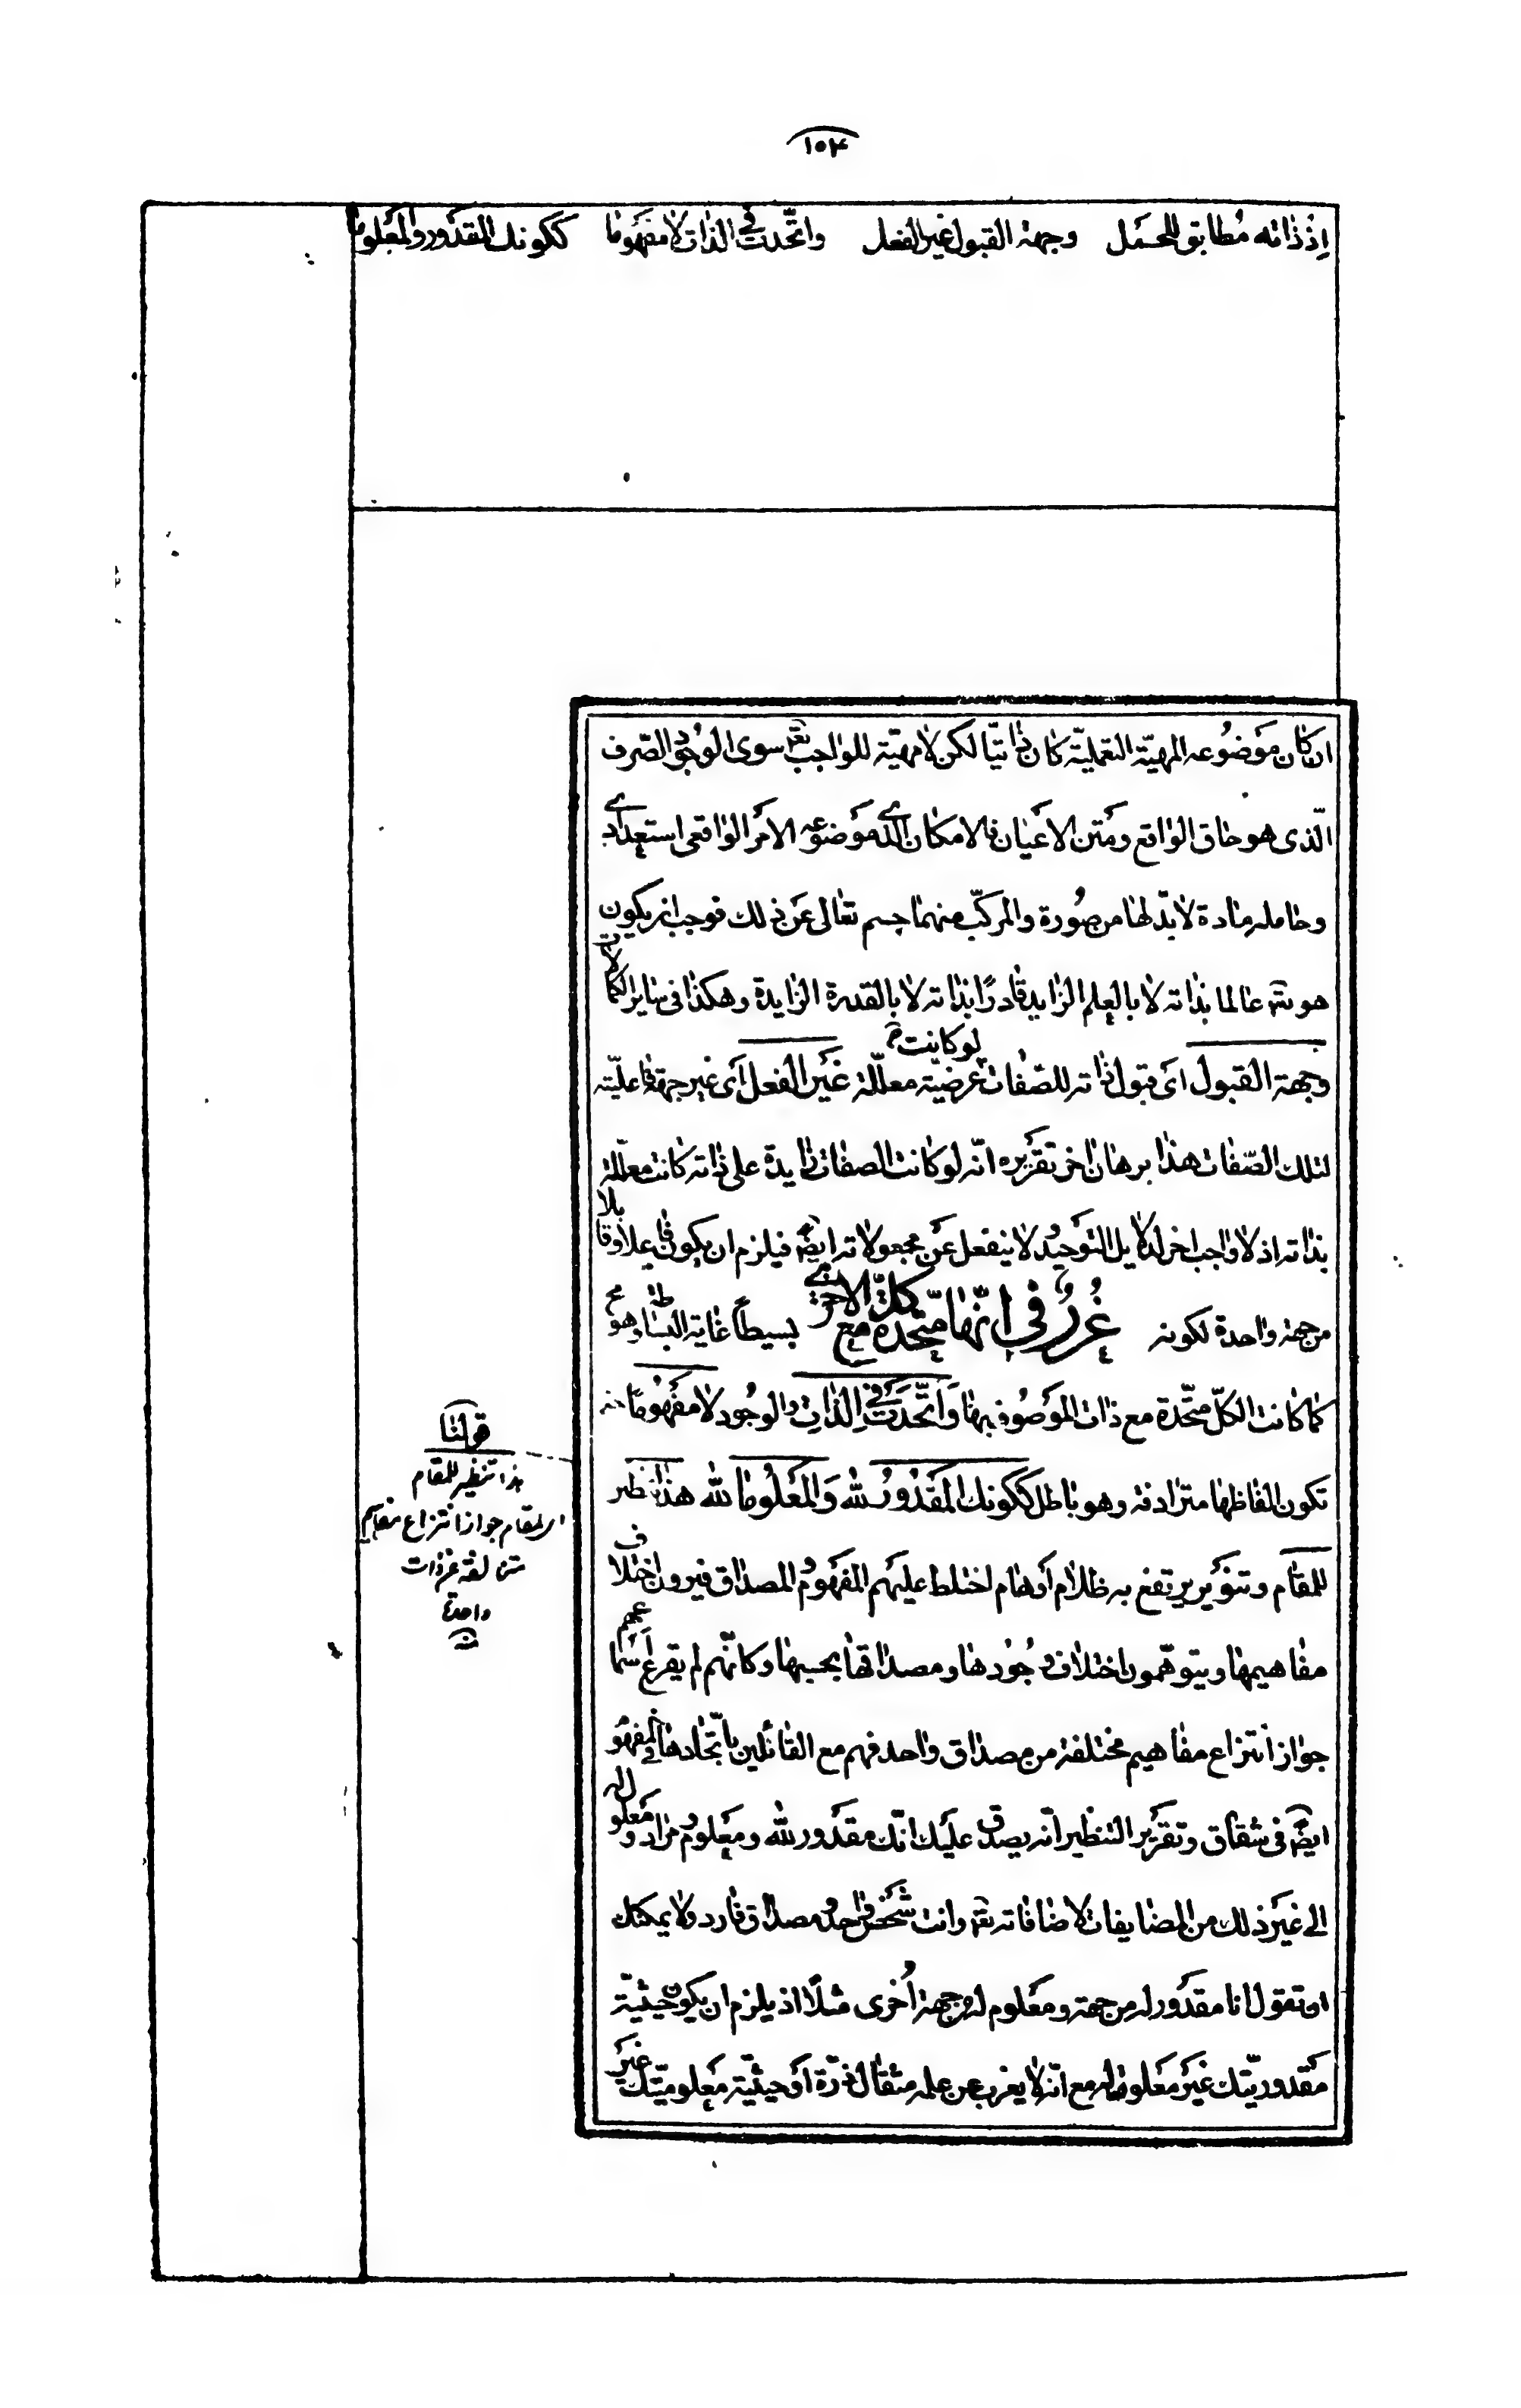 ١٥٤
اِذْ ذاته مُطابق للحَمل وجهة القبول غير الفعل واتّحدت فى الذات لا مفهوما ككونك المقدور والمعلوما
ان كان موضُوعه المهيّة التعمليّة كان ذاتيّا لكن لا مهيّة للواجب تعم سوى الوجود الصّرف
الّذى هو حاق الواقع ومتن الاعيان فالامكان الذے موضوعه الامر الواقعى استعدادے
وحامله مادة لا بدّ لها من صُورة والمركّب منهما جسم تعالى عن ذلك فوجب ان يكون
هو تعم عالما بذاته لا بالعلم الزايد قادرًا بذاته لا بالقدرة الزايدة وهكذا فى ساير الكمالات
وجهة القبول اى قبول ذاته للصّفات لو كانت عرضية معلّلة غَير الفعل اى غير جهة فاعليّته
لتلك الصّفات هذا برهان اخر تقريره انّه لو كانت الصفات زايدة على ذاته كانت معلّلة
بذاته اذ لا واجب اخر لدلايل التوحيد ولا ينفعل عن مجعولاته ايضم فيلزم ان يكون فاعلا وقابلا
من جهة واحدة لكونه بسيطا غاية البساطة وهو مح
غُررٌ فى انّها متّحدة كلّ مع الاخرى
كما كانت الكلّ متّحدة مع ذات الموصُوف بها وَاتّحَدَت فى الذّات والوجود لا مفهُومًا حتى
تكون الفاظها مترادفة وهو باطل ككونك المَقدُورَ للّه وَالمَعلُوما للّه هذا نظير
للمقام وتنوير يرتفع به ظلام اوهام اختلط عليهم المفهوم والمصداق فيرون اختلاف
مفاهيمها ويتوهّمون اختلاف وجُودها ومصداقها بحسبها وكانّهم لم يقرع اسماعهم
جواز انتزاع مفاهيم مختلفة من مصداق واحد فهم مع القائلين باتّحادها فى المفهوم
ايضم فى شقاق وتقرير التنظير انّه يصدق عليك انّك مقدور للّه ومعلوم ومراد ومعلول له
الى غير ذلك من المضايفات لاضافاته تعم وانت شخص واحد ومصداق فارد ولا يمكنك
ان تقول انا مقدور له من جهة ومعلوم له من جهة اُخرى مثلًا اذ يلزم ان يكون حيثيّة
مقدوريّتك غير معلومة له مع انّه لا يعزب عن علمه مثقال ذرّة او حيثيّة معلوميّتك غير
قولنا
هذا تنظير للمقام
اى لمقام جواز انتزاع مفاهيم
عن ذات
واحدة